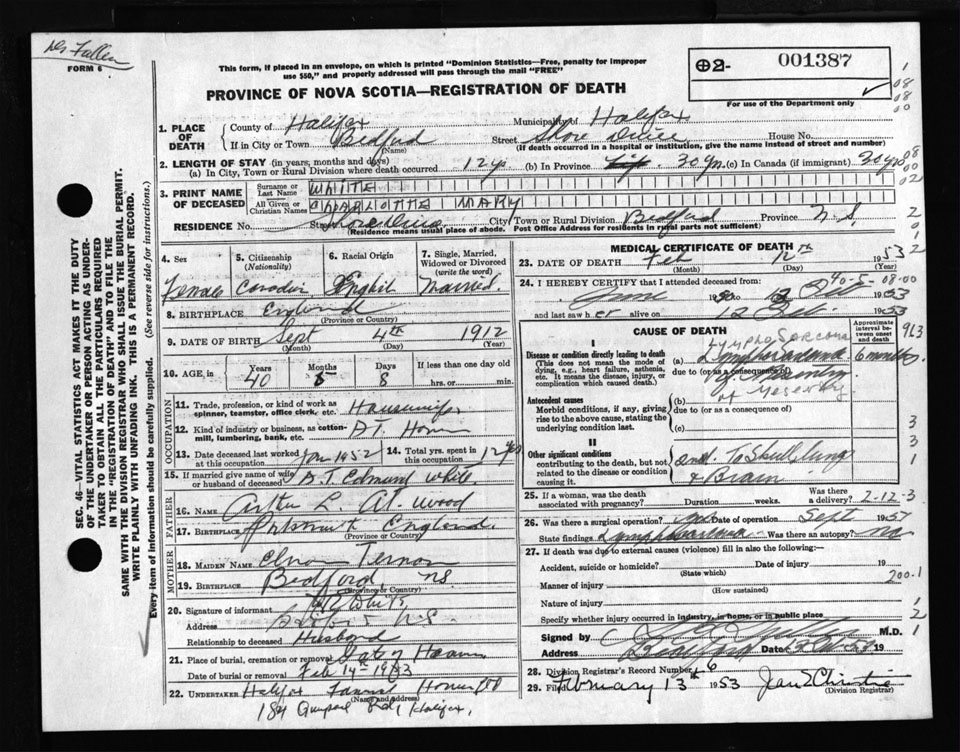 FORM 6
This form, if placed in an envelope, on which is printed "Dominion Statistics—Free, penalty for improper
use $50," and properly addressed will pass through the mail "FREE"
PROVINCE OF NOVA SCOTIA—REGISTRATION OF DEATH
⊕2- 001387
For use of the Department only
1. PLACE OF DEATH
County of Halifax Municipality of Halifax
If in City or Town Bedford Street Shore Drive House No.
(Name) (If death occurred in a hospital or institution, give the name instead of street and number)
2. LENGTH OF STAY (in years, months and days)
(a) In City, Town or Rural Division where death occurred 12 yrs (b) In Province 30 yrs (c) In Canada (if immigrant) 30 yrs
3. PRINT NAME OF DECEASED
Surname or Last Name WHITE
All Given or Christian Names CHARLOTTE MARY
RESIDENCE No. Street Shore Drive City/Town or Rural Division Bedford Province N.S.
(Residence means usual place of abode. Post Office Address for residents in rural parts not sufficient)
4. Sex Female
5. Citizenship (Nationality) Canadian
6. Racial Origin English
7. Single, Married, Widowed or Divorced (write the word) Married
8. BIRTHPLACE England
(Province or Country)
9. DATE OF BIRTH Sept 4th 1912
(Month) (Day) (Year)
10. AGE Years 40 Months 5 Days 8 If less than one day hrs. or min.
OCCUPATION
11. Trade, profession, or kind of work as spinner, teamster, office clerk, etc. Housewife
12. Kind of industry or business, as cotton-mill, lumbering, bank, etc. At Home
13. Date deceased last worked at this occupation Jan 1952
14. Total yrs. spent in this occupation 12 yrs
15. If married give name of wife or husband of deceased Edmund White
FATHER
16. NAME Arthur L. At wood
17. BIRTHPLACE England
(Province or Country)
MOTHER
18. MAIDEN NAME
19. BIRTHPLACE Bedford, NS
(Province or Country)
20. Signature of informant
Address N.S.
Relationship to deceased Husband
21. Place of burial, cremation or removal Gate of Heaven
Date of burial or removal Feb 14-1953
22. UNDERTAKER Halifax Funeral Home Ltd
(Name and address)
Halifax,
MEDICAL CERTIFICATE OF DEATH
23. DATE OF DEATH Feb 12th 1953
(Month) (Day)
24. I HEREBY CERTIFY that I attended deceased from:
June 1953
and last saw her alive on 12 Feb. 1953
CAUSE OF DEATH
Approximate interval between onset and death
I
Disease or condition directly leading to death
(This does not mean the mode of dying, e.g., heart failure, asthenia, etc. It means the disease, injury, or complication which caused death.)
Lympho Sarcoma
(a) 6 months
due to (or as a consequence of)
of Mesentery
Antecedent causes
Morbid conditions, if any, giving rise to the above cause, stating the underlying condition last.
(b)
due to (or as a consequence of)
(c)
II
Other significant conditions
contributing to the death, but not related to the disease or condition causing it.
To Skull, lung
& Brain
25. If a woman, was the death associated with pregnancy? Duration weeks. Was there a delivery?
26. Was there a surgical operation? yes Date of operation Sept
State findings Was there an autopsy? no
27. If death was due to external causes (violence) fill in also the following:—
Accident, suicide or homicide? Date of injury 19
(State which)
Manner of injury
(How sustained)
Nature of injury
Specify whether injury occurred in industry, in home, or in public place
Signed by M.D.
Address Bedford Date
28. Division Registrar's Record Number 6
29. Filed February 13th 1953
(Division Registrar)
2-12-3
200.1
SEC. 46—VITAL STATISTICS ACT MAKES IT THE DUTY
OF THE UNDERTAKER OR PERSON ACTING AS UNDER-
TAKER TO OBTAIN ALL THE PARTICULARS REQUIRED
IN THE "REGISTRATION OF DEATH" AND TO FILE THE
SAME WITH THE DIVISION REGISTRAR WHO SHALL ISSUE THE BURIAL PERMIT.
WRITE PLAINLY WITH UNFADING INK. THIS IS A PERMANENT RECORD.
Every item of information should be carefully supplied. (See reverse side for instructions.)